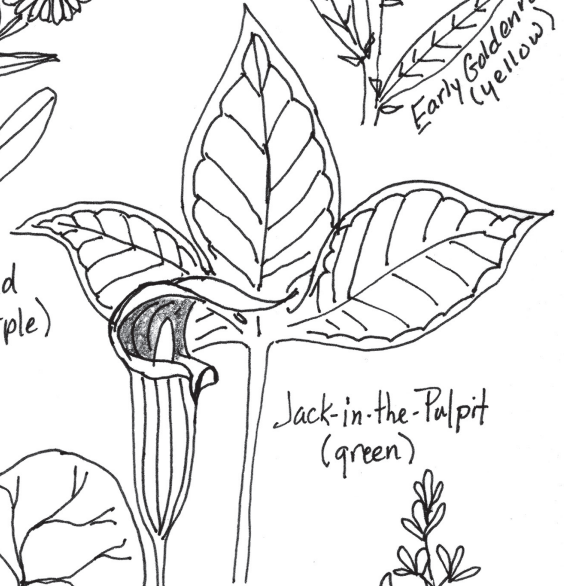 Early Goldenr
(yellow)
d
rple)
Jack-in-the-Pulpit
(green)